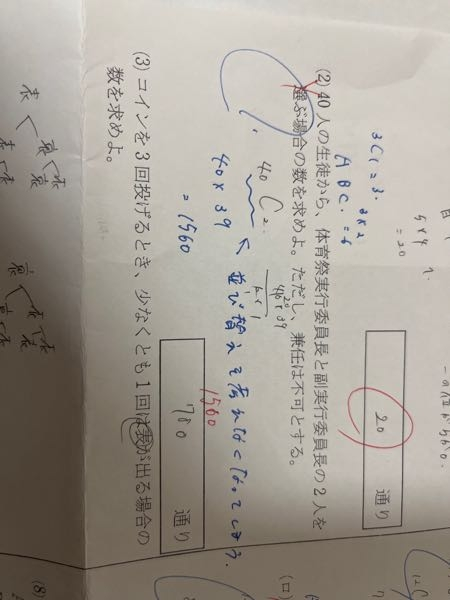 5×4
=20
20 通り
3C1=3.
3×2
=6
ABC.
(2) 40人の生徒から、体育祭実行委員長と副実行委員長の2人を
選ぶ場合の数を求めよ。ただし、兼任は不可とする。
40C2.
20
40×39
2×1
並び替えを
40×39
=1560
1560
780 通り
(3) コインを3回投げるとき、少なくとも1回は表が出る場合の
数を求めよ。
表
裏
(ロ)
(8)